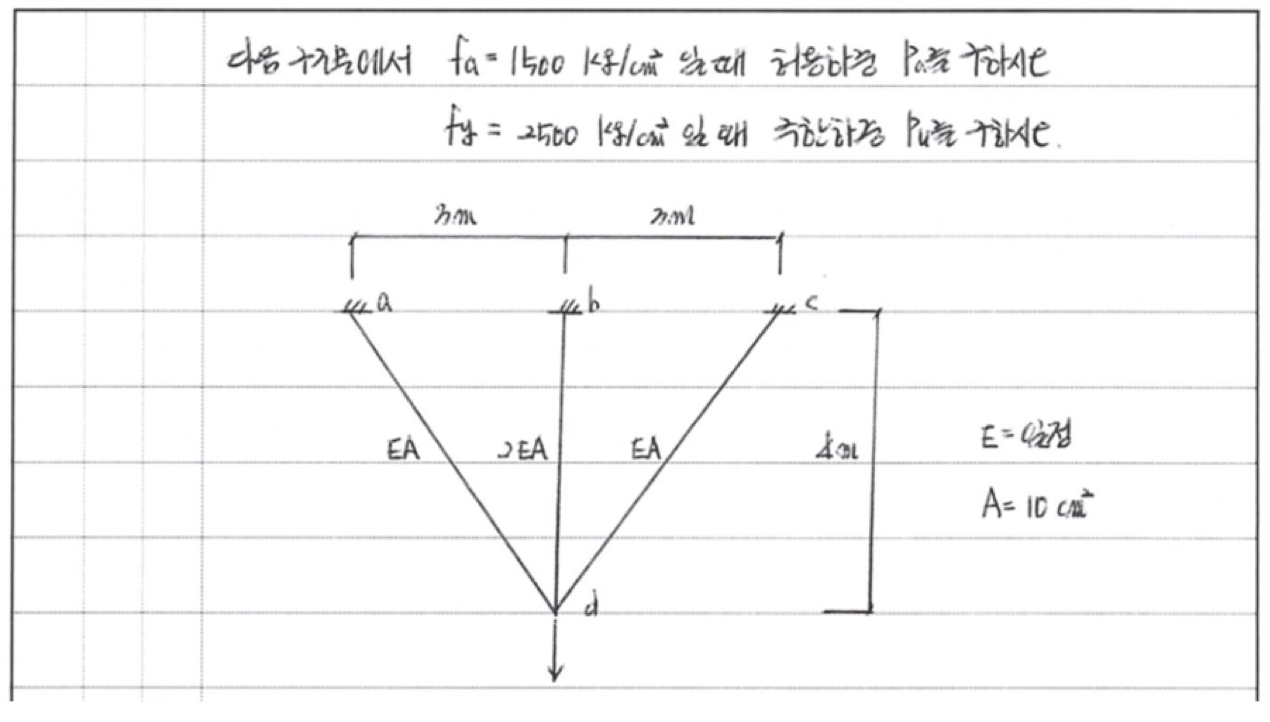 다음 구조물에서 fa = 1500 kg/cm² 일 때 허용하중 Pa를 구하시오
fy = 2500 kg/cm² 일 때 극한하중 Pu를 구하시오.
3m 3m
a b c
EA 2EA EA 4m E = 일정
A = 10 cm²
d